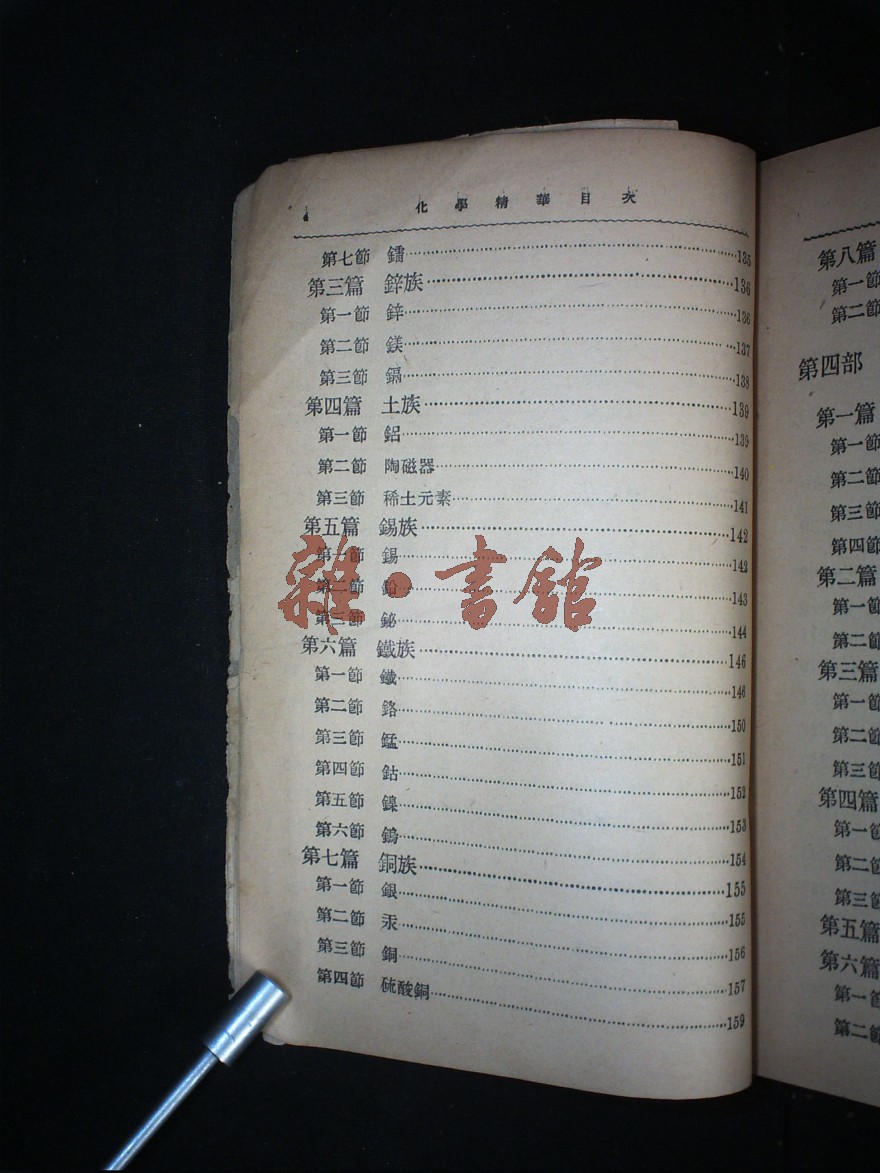 4 化學精華目次
第七節 鐳 135
第三篇 鋅族 136
第一節 鋅 136
第二節 鎂 137
第三節 鎘 138
第四篇 土族 139
第一節 鋁 139
第二節 陶磁器 140
第三節 稀土元素 141
第五篇 錫族 142
第一節 錫 142
第二節 鉛 143
第三節 鉍 144
第六篇 鐵族 146
第一節 鐵 146
第二節 鉻 150
第三節 錳 151
第四節 鈷 152
第五節 鎳 153
第六節 鎢 154
第七篇 銅族 155
第一節 銀 155
第二節 汞 156
第三節 銅 157
第四節 硫酸銅 159
雜·書館
第八篇
第一節
第二節
第四部
第一篇
第一節
第二節
第三節
第四節
第二篇
第一節
第二節
第三篇
第一節
第二節
第三節
第四篇
第一節
第二節
第三節
第五篇
第六篇
第一節
第二節